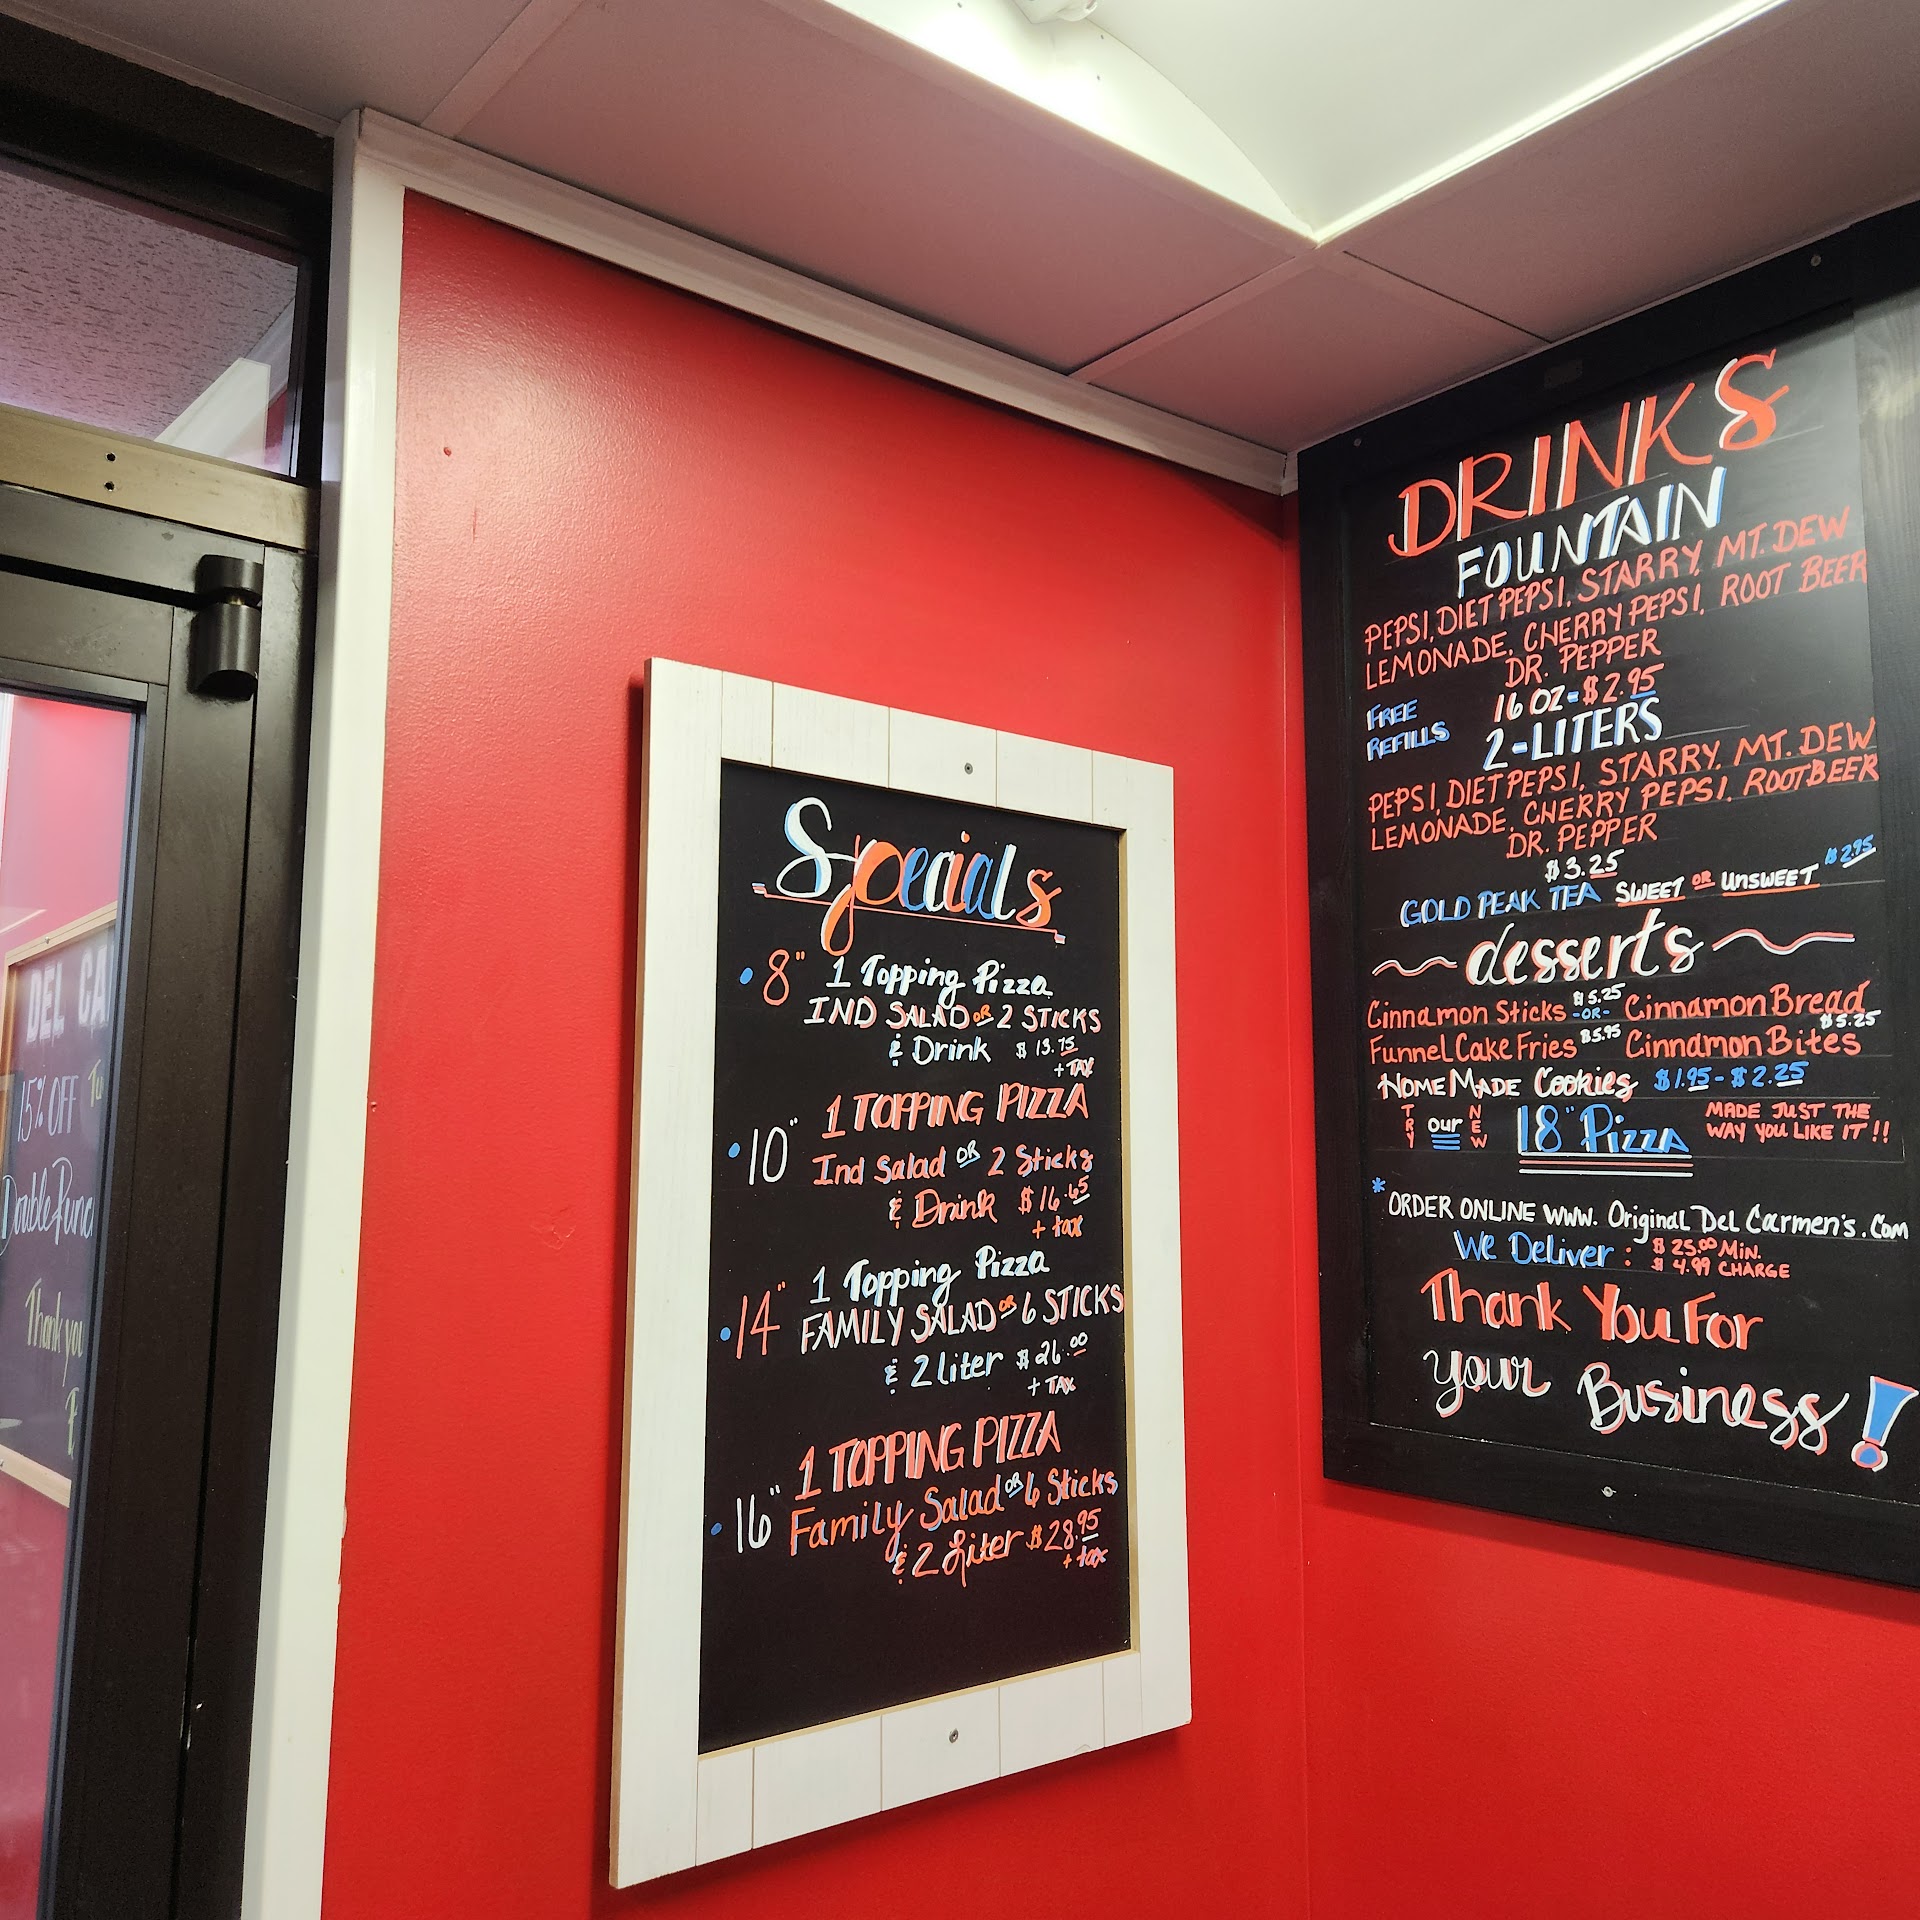 DEL CA
15% OFF
Thank you
Specials
• 8" 1 Topping Pizza
IND SALAD OR 2 STICKS
& Drink $13.75
+ TAX
• 10" 1 TOPPING PIZZA
Ind Salad OR 2 Sticks
& Drink $16.45
+ tax
• 14" 1 Topping Pizza
FAMILY SALAD OR 6 STICKS
& 2 liter $26.00
+ TAX
• 16" 1 TOPPING PIZZA
Family Salad OR 6 Sticks
& 2 Liter $28.95
+ tax
DRINKS
FOUNTAIN
PEPSI, DIET PEPSI, STARRY, MT. DEW
LEMONADE, CHERRY PEPSI, ROOT BEER
DR. PEPPER
FREE REFILLS
16 OZ - $2.95
2-LITERS
PEPSI, DIET PEPSI, STARRY, MT. DEW
LEMONADE, CHERRY PEPSI, ROOTBEER
DR. PEPPER
$3.25
GOLD PEAK TEA SWEET OR UNSWEET $2.95
desserts
Cinnamon Sticks $5.25 -OR- Cinnamon Bread $5.25
Funnel Cake Fries $5.95 Cinnamon Bites
HOMEMADE Cookies $1.95 - $2.25
TRY our NEW 18" Pizza MADE JUST THE
WAY YOU LIKE IT!!
* ORDER ONLINE WWW. Original Del Carmen's.Com
We Deliver : $25.00 Min.
$4.99 CHARGE
Thank You For
your Business!